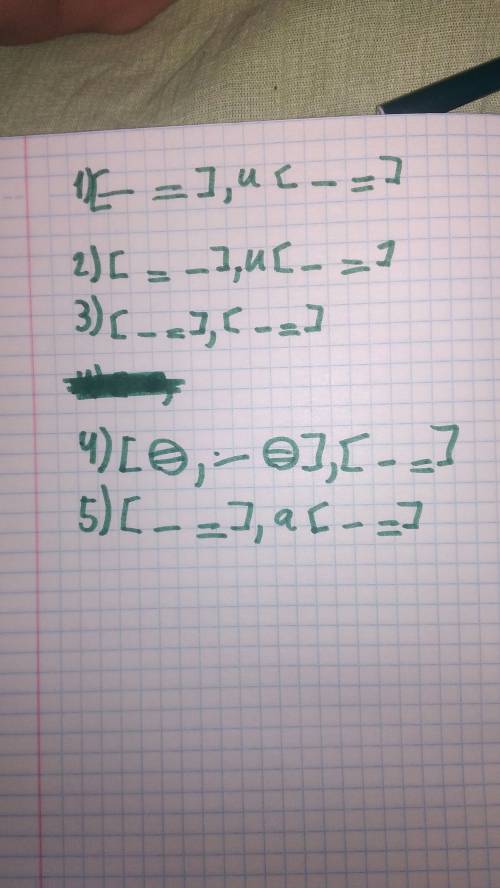 1) [– =], и [– =]
2) [= –], и [– =]
3) [– =], [– =]
4) [⊜, – ⊜], [– =]
5) [– =], а [– =]